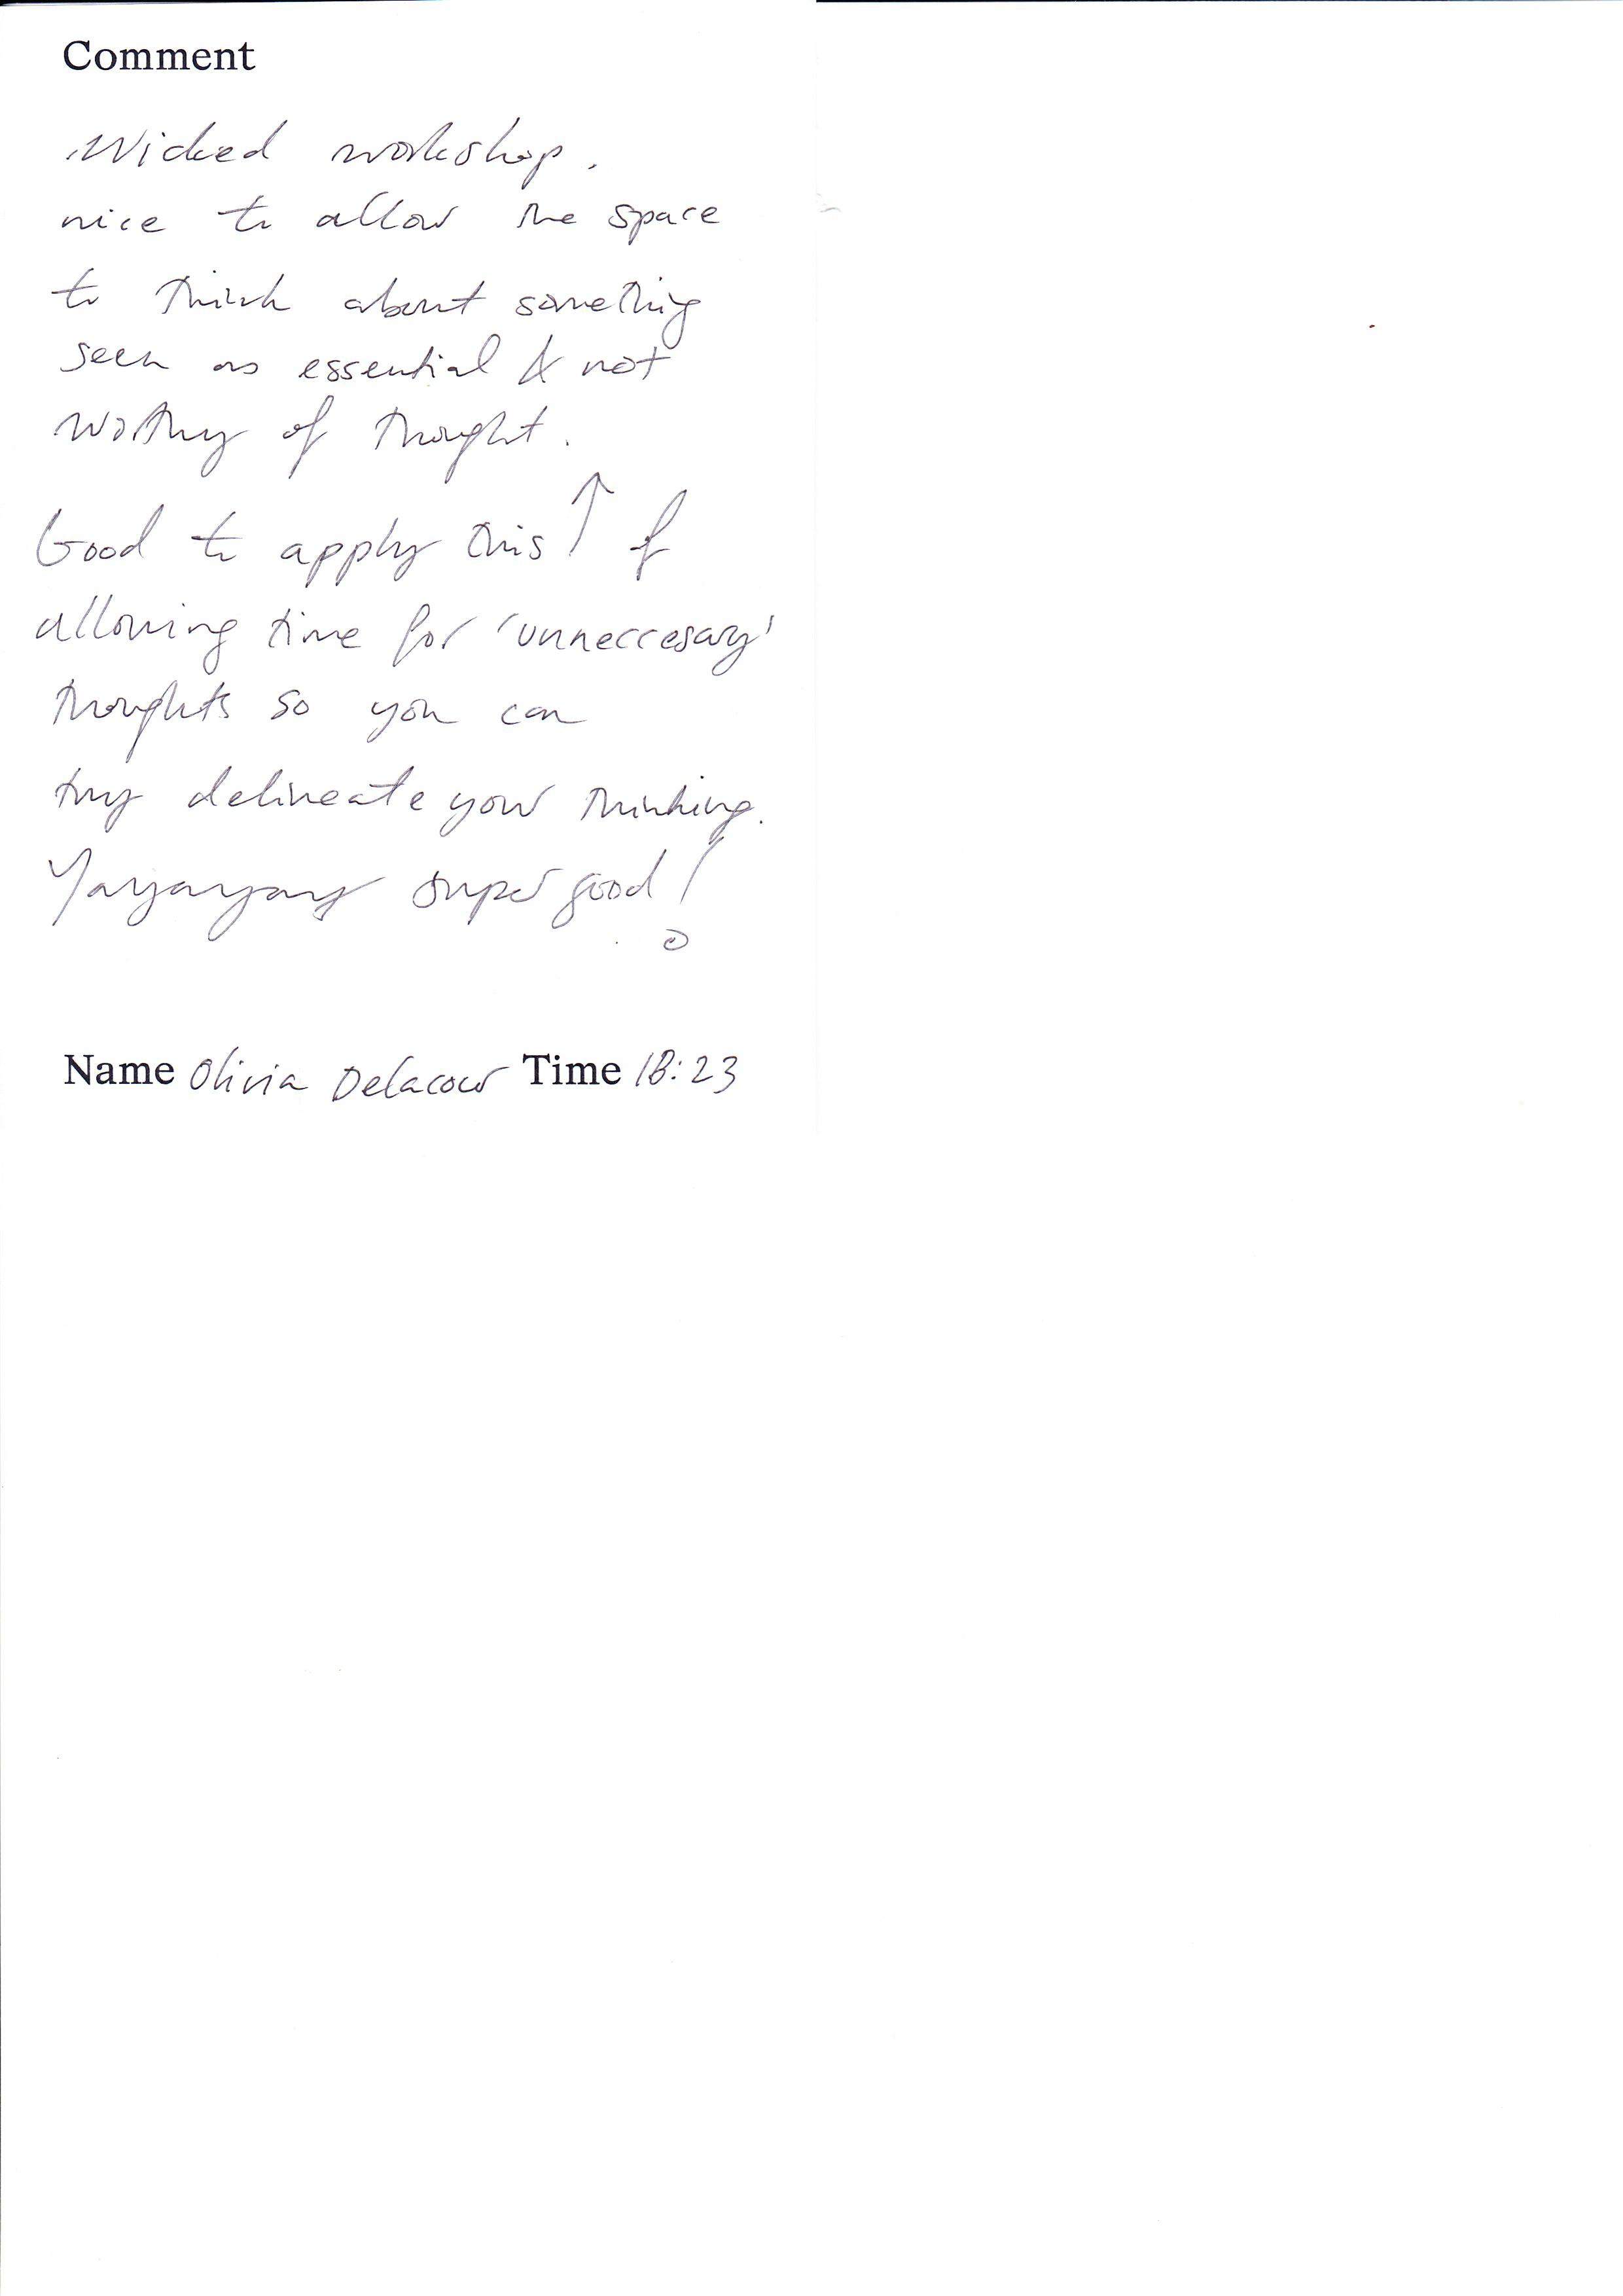 Comment
Wicked workshop.
nice to allow the space
to think about something
seen as essential & not
worthy of thought.
Good to apply this ↑ of
allowing time for 'unneccesary'
thoughts so you can
try delineate your thinking.
Yayayay super good!
Name Olivia Delacour Time 18:23